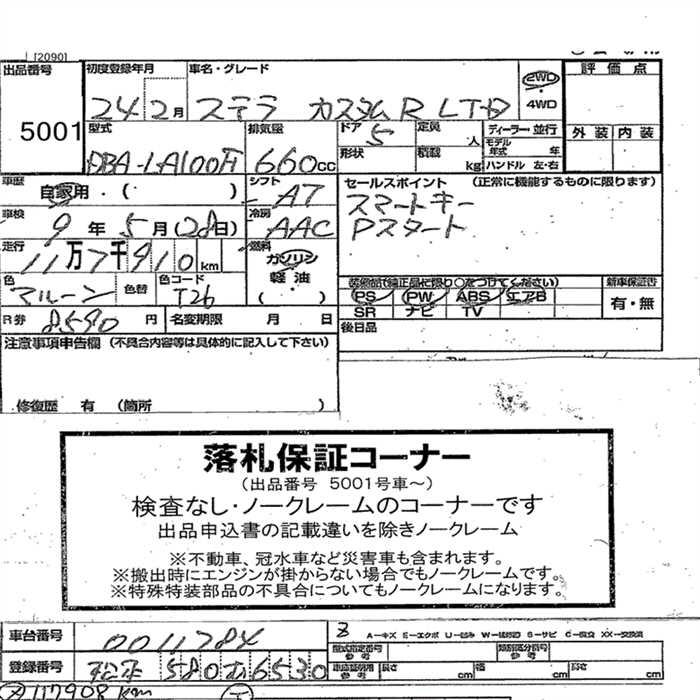 [2090]
出品番号 5001
初度登録年月 24 2月
車名・グレード ステラ カスタム R LTD
2WD 4WD
評価点
外装 内装
型式 DBA-LA100F
排気量 660cc
ドア 5
形状
定員 人
積載 kg
ディーラー・並行
モデル年式 年
ハンドル 左・右
車歴 自家用・( )
シフト AT
セールスポイント (正常に機能するものに限ります)
スマートキー
Pスタート
車検 9年5月(28日)
冷房 AAC
走行 11万7千910km
燃料 ガソリン 軽油 ( )
色 マルーン 色替
色コード T26
装備品(純正品に限り○をつけてください)
PS PW ABS エアB
SR ナビ TV
新車保証書 有・無
R券 8590円
名変期限 月 日
後日品
注意事項申告欄 (不具合内容等は具体的に記入して下さい)
修復歴 有 (箇所 )
落札保証コーナー
(出品番号 5001号車~)
検査なし・ノークレームのコーナーです
出品申込書の記載違いを除きノークレーム
※不動車、冠水車など災害車も含まれます。
※搬出時にエンジンが掛からない場合でもノークレームです。
※特殊特装部品の不具合についてもノークレームになります。
車台番号 0011784
A-キズ E-エクボ U-凹み W-補修跡 S-サビ C-腐食 XX-交換済
登録番号 松本 580 わ 6530
型式指定番号 参考
類別区分番号 参考
車庫証明用 参考 長さ cm 幅 cm 高さ cm
117908km